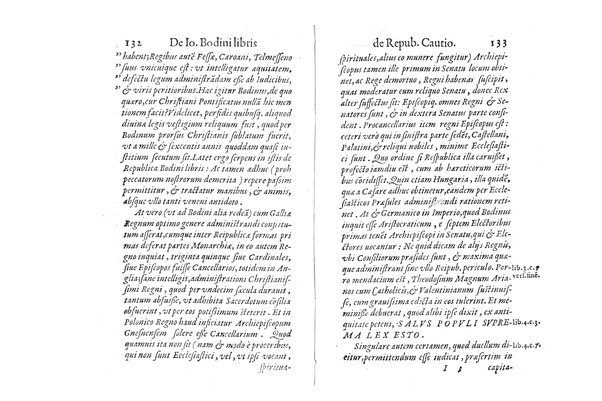 132 De Io. Bodini libris
” habent; Regibus autē Fessæ, Caroani, Telmesseno
” suus vnicuique est: vt intelligatur æquitatem,
” defectu legum administrādam esse ab Iudicibus,
” & viris pontificibus. Hæc igitur Bodinus, de quo
quæro, cur Christiani Pontificatus nullā hic men
tionem facit? Videlicet, persidi quibusq́. aliquod
diuinæ legis vestigium reliquum fuit, quod per
Bodinum prorsus Christianis sublatum fuerit,
vt a mille & sexcentis annis quoddam quasi iu-
stitium secutum sit. Latet ergo serpens in istis de
Republica Bodini libris: At tamen adhuc (proh
peccatorum nostrorum demerita) repere passim
permittitur, & tractatur manibus, & animis,
absque vllo tanti veneni antidoto.
At vero (vt ad Bodini alia redeā) cum Galliæ
Regnum optimo genere administrandi constitu-
tum asserat, eumque inter Reipublicæ formas pri
mas deferat partes Monarchiæ, in eo autem Re-
gno inquiat, triginta quinque siue Cardinales,
siue Episcopos fuisse Cancellarios, totidem in An-
glia; sane intelligit, administrationi Christianis-
simi Regni, quor per vndecim sæcula durauit,
tantum abfuisse, vt adhibita Sacerdotum cōsilia
obfuerint, vt per eos potissimum steterit. Et in
Polonico Regno haud inficiatur Archiepiscopum
Gnesnensem solere esse Cancellarium. Quod
quamuis ita non sit (nam & modo è proceribus,
qui non sunt Ecclesiastici, vel, vt ipsi vocant,
spiritua-
de Repub. Cautio. 133
spirituales, alius eo munere fungitur) Archiepi-
scopus tamen ille primum in Senatu locum obti-
net, ac Rege demortuo, Regni habenas suscipit,
quas moderatur cum reliquo Senatu, donec Rex
alter suffectus sit: Episcopiq́. omnes Regni & Se-
natores sunt, & in dextera Senatus parte consi-
dent. Procancellarius item regni Episcopus est:
ceteri vero qui in sinistra parte sedēt, Castellani,
Palatini, & reliqui nobiles, minime Ecclesiasti-
ci sunt. Quo ordine si Respublica illa caruisset,
profecto iamdiu est, cum ab hæreticorum icti-
bus cōcidisset. Quin etiam Hungaria, illa quidē,
quæ a Casare adhuc obtinetur, eandem per Eccle-
siasticos Præsules administrandi rationem reti-
net. At & Germanico in Imperio, quod Bodinus
inquit esse Aristocraticum, e septem Electoribus
primas tenēt Archiepiscopi in Senatu, qui & Ele-
ctores vocantur: Ne quid dicam de alijs Regnis,
vbi Consiliorum præsides sunt, & maxima quæ-
que administrant sine vllo Reipub. periculo. Por-
lib. 3. c. 7
ro mendacium est, Theodosium Magnum Aria-
nos cum Catholicis, & Valentinianum sustinuis-
se, cum grauissima edicta in eos tulerit. Et me-
minisse debuerat, quod alibi ipse dixit, ex anti-
quitate petens, SALVS POPVLI SVPRE-
lib. 4. c. 3.
MA LEX ESTO.
Singulare autem certamen, quod duellum di-
lib. 4. c. 7.
citur, permittendum esse iudicat, præsertim in
I 3 capita-